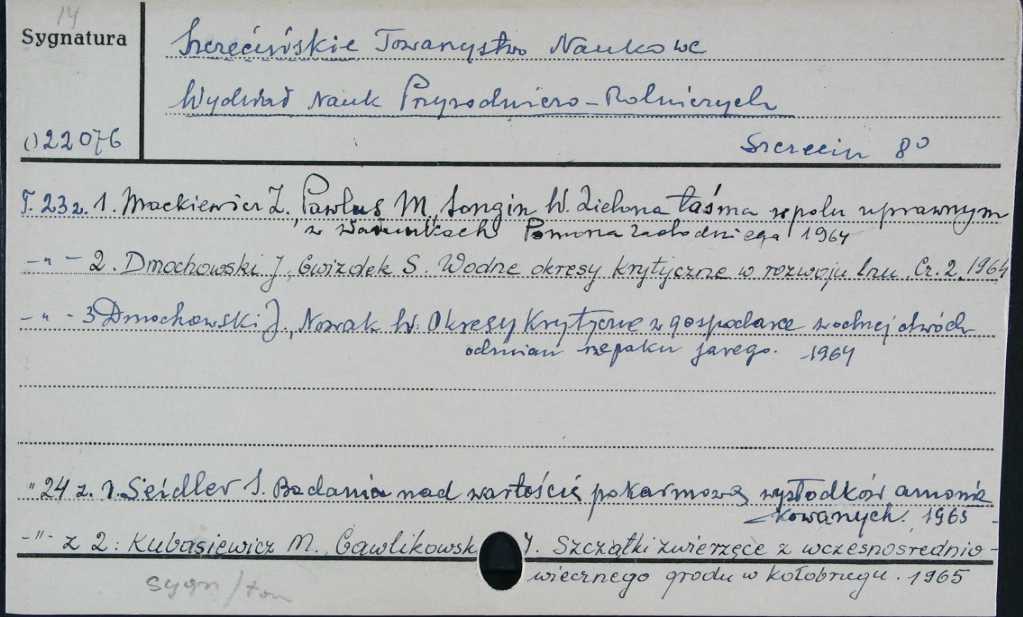 14
Sygnatura
Szczecińskie Towarzystwo Naukowe
Wydział Nauk Przyrodniczo-Rolniczych
()22076
Szczecin 8º
T. 23 z. 1. Mackiewicz Z., Pawlus M., Longin W. Zielona taśma w polu uprawnym
w warunkach Pomorza Zachodniego 1964
-"- 2. Dmochowski J., Gwizdek S. Wodne okresy krytyczne w rozwoju lnu. Cz. 2. 1964
-"- 3 Dmochowski J., Nowak W. Okresy krytyczne w gospodarce wodnej dwóch
odmian rzepaku jarego. 1964
" 24 z. 1. Seidler S. Badania nad wartością pokarmową wysłodków amonia
kowanych. 1965 -
-"- z 2: Kubasiewicz M., Gawlikowsk J. Szczątki zwierzęce z wczesnośrednio-
wiecznego grodu w Kołobrzegu. 1965
sygn/